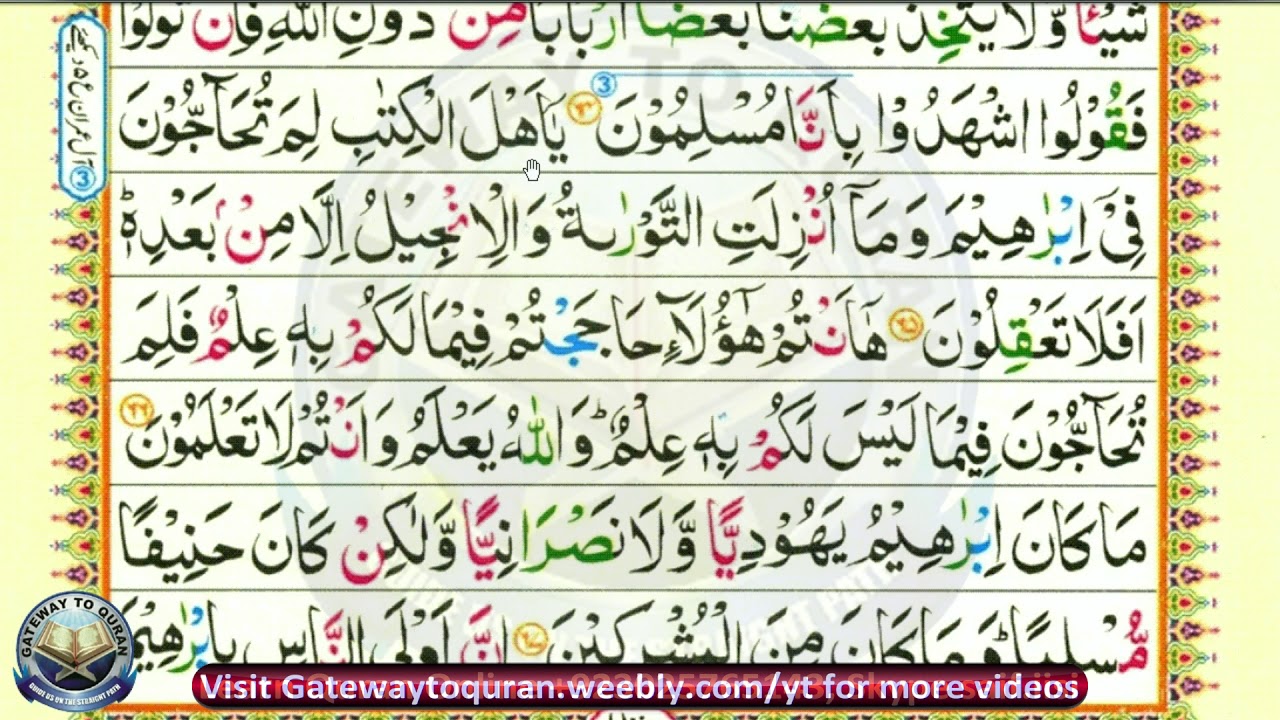 شَيْـًٔا وَّلَا يَتَّخِذَ بَعْضُنَا بَعْضًا اَرْبَابًا مِّنْ دُوْنِ اللّٰهِ فَاِنْ تَوَلَّوْا
فَقُوْلُوا اشْهَدُوْا بِاَنَّا مُسْلِمُوْنَ ۶۴ 3 يٰۤاَهْلَ الْكِتٰبِ لِمَ تُحَآجُّوْنَ
فِيْۤ اِبْرٰهِيْمَ وَمَاۤ اُنْزِلَتِ التَّوْرٰىةُ وَالْاِنْجِيْلُ اِلَّا مِنْۢ بَعْدِهٖ ؕ
اَفَلَا تَعْقِلُوْنَ ۶۵ هٰۤاَنْتُمْ هٰۤؤُلَآءِ حَاجَجْتُمْ فِيْمَا لَكُمْ بِهٖ عِلْمٌ فَلِمَ
تُحَآجُّوْنَ فِيْمَا لَيْسَ لَكُمْ بِهٖ عِلْمٌ ؕ وَاللّٰهُ يَعْلَمُ وَاَنْتُمْ لَا تَعْلَمُوْنَ ۶۶
مَا كَانَ اِبْرٰهِيْمُ يَهُوْدِيًّا وَّلَا نَصْرَانِيًّا وَّلٰكِنْ كَانَ حَنِيْفًا
مُّسْلِمًا ؕ وَمَا كَانَ مِنَ الْمُشْرِكِيْنَ ۶۷ اِنَّ اَوْلَى النَّاسِ بِاِبْرٰهِيْمَ
3
GATEWAY TO QURAN
GUIDE US ON THE STRAIGHT PATH
Visit Gatewaytoquran.weebly.com/yt for more videos